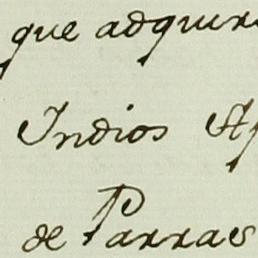 que adquir
Indios Ap
de Parras